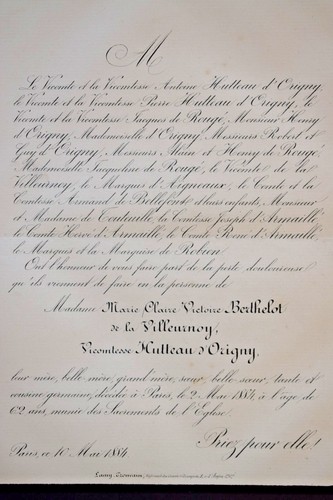 M
Le Vicomte et la Vicomtesse Antoine Hutteau d'Origny,
le Vicomte et la Vicomtesse Pierre Hutteau d'Origny, le
Vicomte et la Vicomtesse Jacques de Rougé, Monsieur Henry
d'Origny, Mademoiselle d'Origny, Messieurs Robert et
Guy d'Origny, Messieurs Alain et Henry de Rougé,
Mademoiselle Jacqueline de Rougé, le Vicomte de la
Villeurnoy, le Marquis d'Aigneaux, le Comte et la
Comtesse Armand de Bellefont et leurs enfants, Monsieur
et Madame de Couteulle, la Comtesse Joseph d'Armaillé,
le Comte Hervé d'Armaillé, le Comte René d'Armaillé,
le Marquis et la Marquise de Robien:
Ont l'honneur de vous faire part de la perte douloureuse
qu'ils viennent de faire en la personne de
Madame Marie Claire Victoire Berthelot
de la Villeurnoy,
Vicomtesse Hutteau d'Origny,
leur mère, belle mère, grand'mère, sœur, belle sœur, tante et
cousine germaine, décédée à Paris, le 2 Mai 1884, à l'âge de
62 ans, munie des Sacrements de l'Eglise.
Priez pour elle!
Paris, ce 10 Mai 1884.